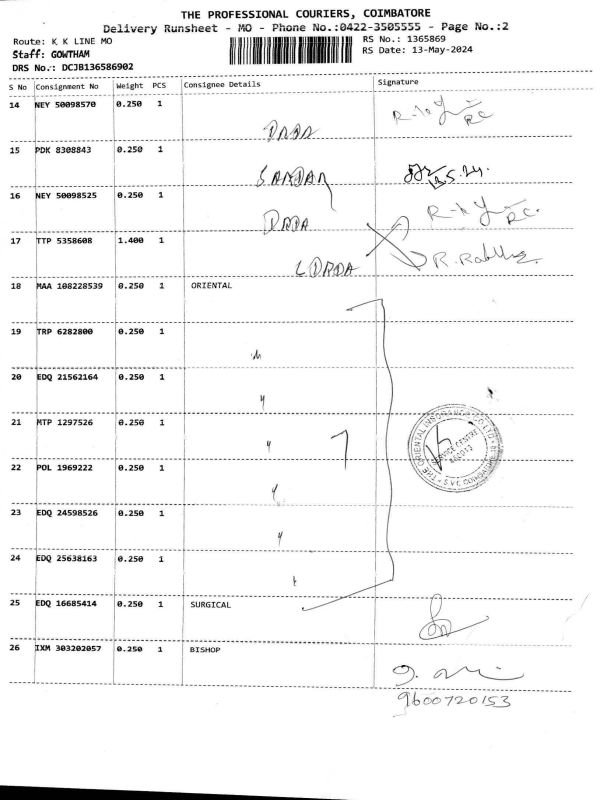 THE PROFESSIONAL COURIERS, COIMBATORE
Delivery Runsheet - MO - Phone No.:0422-3505555 - Page No.:2
Route: K K LINE MO
RS No.: 1365869
Staff: GOWTHAM
RS Date: 13-May-2024
DRS No.: DCJB136586902
S No Consignment No Weight PCS Consignee Details Signature
14 NEY 50098570 0.250 1
15 PDK 8308843 0.250 1
16 NEY 50098525 0.250 1
17 TTP 5358608 1.400 1
18 MAA 108228539 0.250 1 ORIENTAL
19 TRP 6282800 0.250 1
20 EDQ 21562164 0.250 1
21 MTP 1297526 0.250 1
THE ORIENTAL INSURANCE CO.LTD
SERVICE CENTRE
22 POL 1969222 0.250 1
23 EDQ 24598526 0.250 1
24 EDQ 25638163 0.250 1
25 EDQ 16685414 0.250 1 SURGICAL
26 IXM 303202057 0.250 1 BISHOP
9600720153